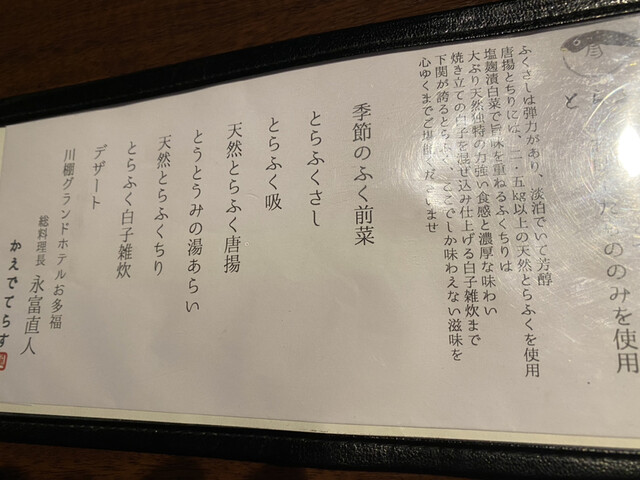 ののみを使用
ふくさしは弾力があり、淡泊でいて芳醇
唐揚とちりには、二・五kg以上の天然とらふくを使用
塩麹漬白菜で旨味を重ねるふくちりは
大ぶり天然独特の力強い食感と濃厚な味わい
焼き立ての白子を混ぜ込み仕上げる白子雑炊まで
下関が誇るとらふく、ここでしか味わえない滋味を
心ゆくまでご堪能くださいませ
季節のふく前菜
とらふくさし
とらふく吸
天然とらふく唐揚
とうとうみの湯あらい
天然とらふくちり
とらふく白子雑炊
デザート
川棚グランドホテルお多福
総料理長 永富直人
かえでてらす